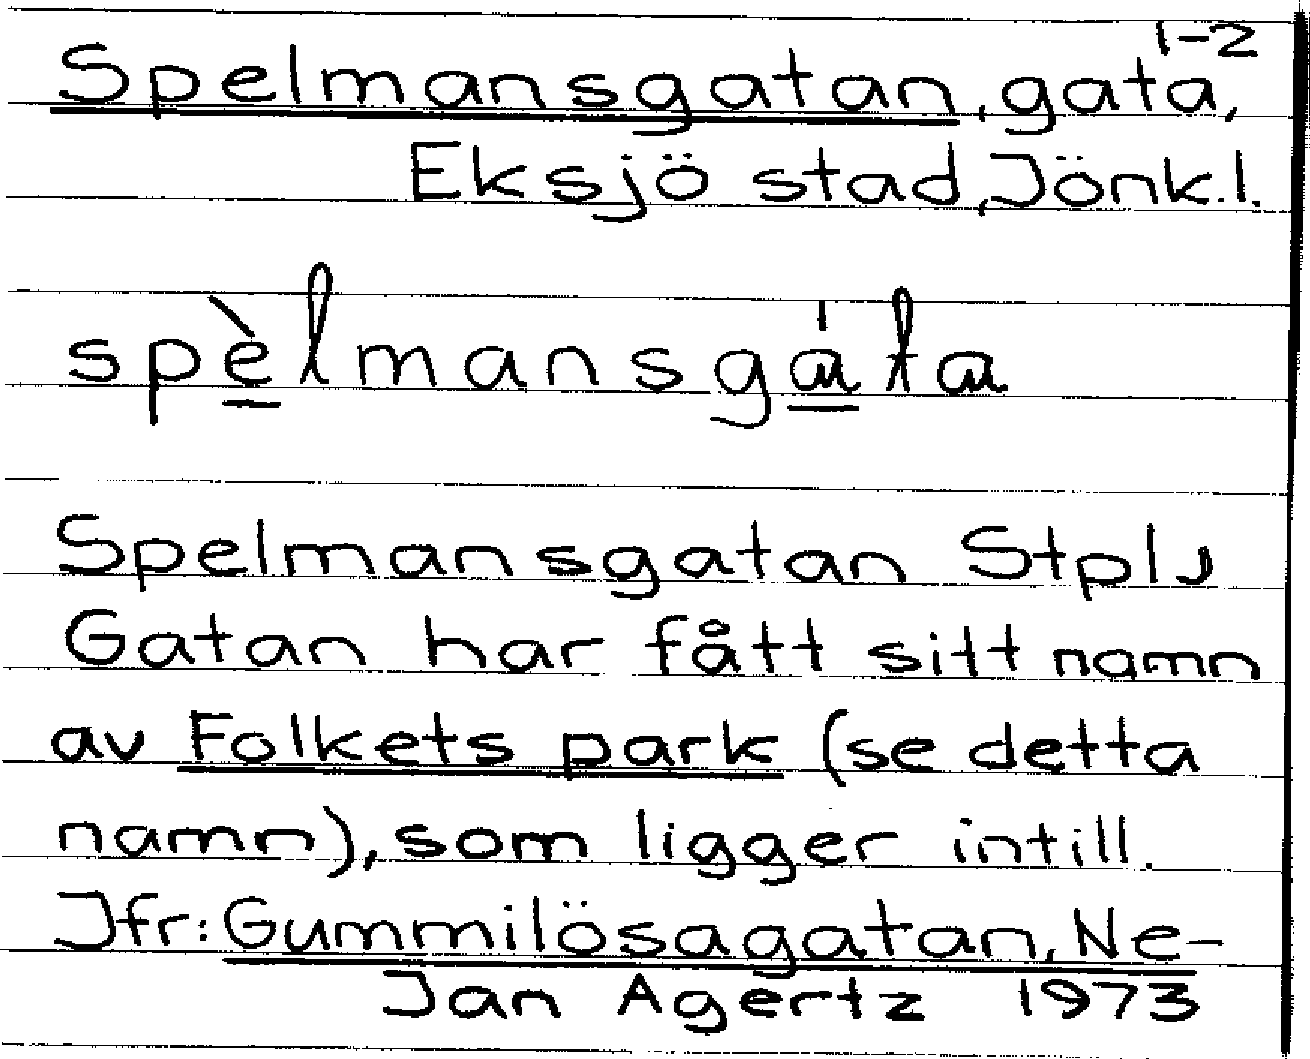 1-2
Spelmansgatan, gata,
Eksjö stad, Jönk.l.
spèlmansgáta
Spelmansgatan Stpl J
Gatan har fått sitt namn
av Folkets park (se detta
namn), som ligger intill.
Jfr: Gummilösagatan, Ne-
Jan Agertz 1973